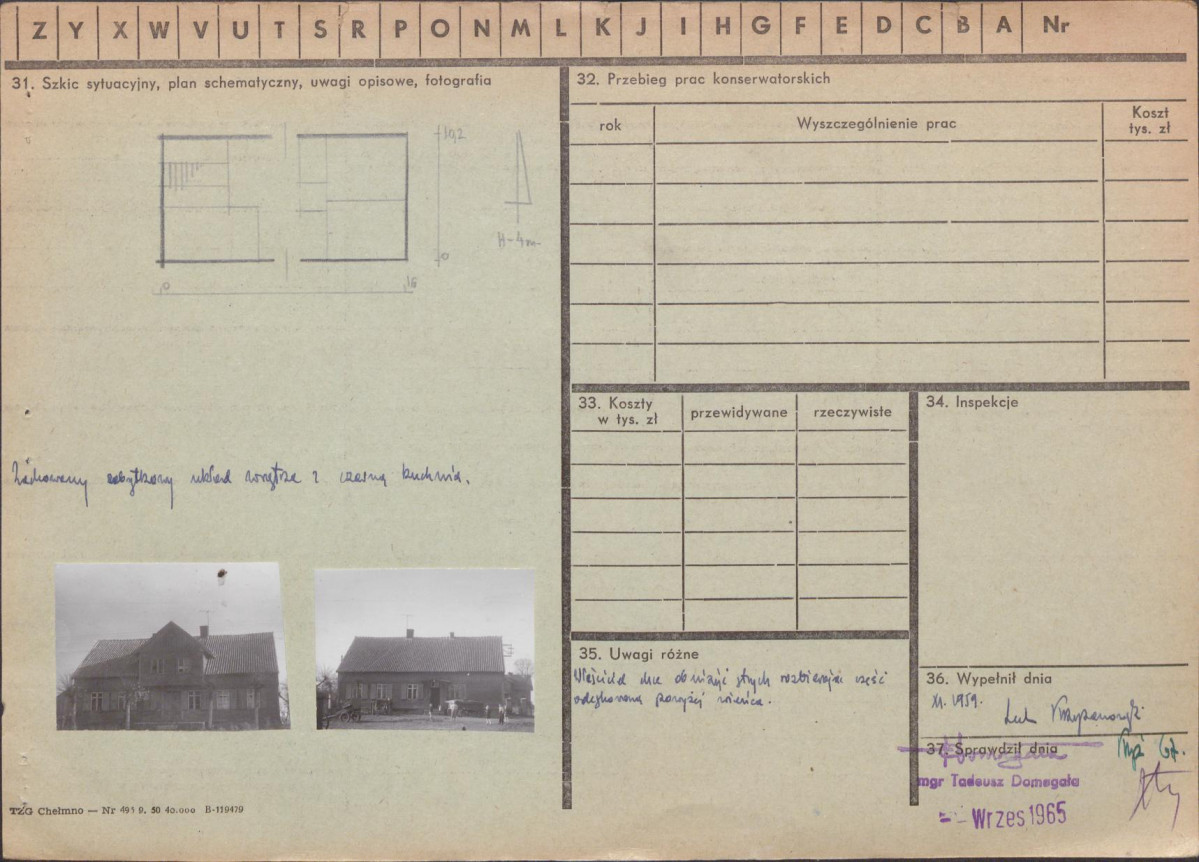 Z Y X W V U T S R P O N M L K J I H G F E D C B A Nr
31. Szkic sytuacyjny, plan schematyczny, uwagi opisowe, fotografia
10,2
0
0
16
H-4m-
Zachowany zabytkowy układ wnętrza z czarną kuchnią.
TZG Chełmno — Nr 495 9. 50 40.000 B-119479
32. Przebieg prac konserwatorskich
rok
Wyszczególnienie prac
Koszt
tys. zł
33. Koszty
w tys. zł
przewidywane
rzeczywiste
34. Inspekcje
35. Uwagi różne
Właściciel chce obniżyć strych rozbierając część
odeskowaną powyżej wieńca.
36. Wypełnił dnia
XI. 1959.
37. Sprawdził dnia
mgr Tadeusz Domagała
Wrzes 1965